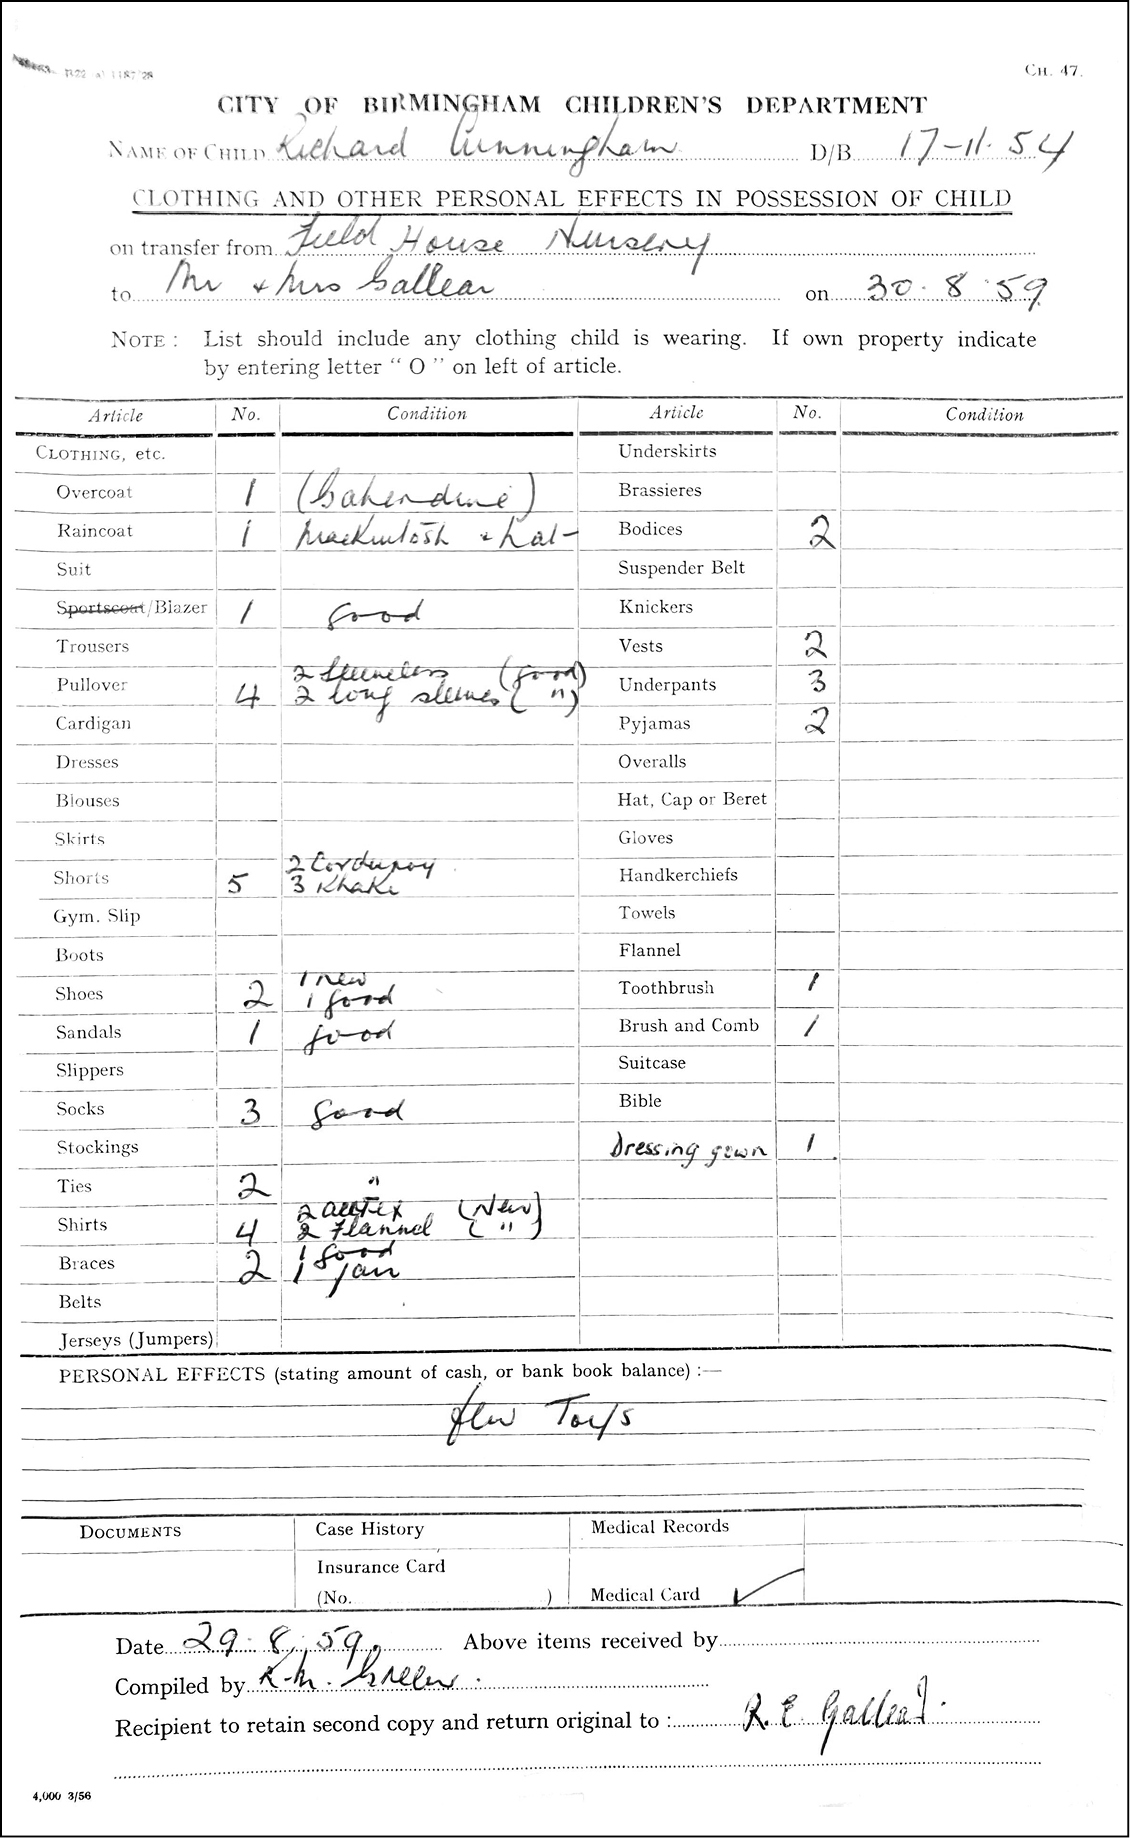 CH. 47.
CITY OF BIRMINGHAM CHILDREN'S DEPARTMENT
NAME OF CHILD Richard Cunningham D/B 17-11-54
CLOTHING AND OTHER PERSONAL EFFECTS IN POSSESSION OF CHILD
on transfer from Field House Nursery
to Mr + Mrs Gallear on 30.8.59
NOTE : List should include any clothing child is wearing. If own property indicate
by entering letter " O " on left of article.
Article No. Condition Article No. Condition
CLOTHING, etc. Underskirts
Overcoat 1 Brassieres
Raincoat 1 Mackintosh + hat Bodices 2
Suit Suspender Belt
Sportscoat/Blazer 1 good Knickers
Trousers Vests 2
2 sleeveless (good)
Pullover 4 2 long sleeves ( " ) Underpants 3
Cardigan Pyjamas 2
Dresses Overalls
Blouses Hat, Cap or Beret
Skirts Gloves
2 Corduroy
Shorts 5 3 Khaki Handkerchiefs
Gym. Slip Towels
Boots Flannel
1 new
Shoes 2 1 good Toothbrush 1
Sandals 1 good Brush and Comb 1
Slippers Suitcase
Socks 3 good Bible
Stockings Dressing gown 1
Ties 2 "
2 (New)
Shirts 4 2 Flannel ( " )
1 good
Braces 2 1
Belts
Jerseys (Jumpers)
PERSONAL EFFECTS (stating amount of cash, or bank book balance) :—
few Toys
DOCUMENTS Case History Medical Records
Insurance Card
(No. ) Medical Card ✓
Date 29.8.59. Above items received by
Compiled by K.M. Green.
Recipient to retain second copy and return original to : R. E. Gallear.
4,000 3/56